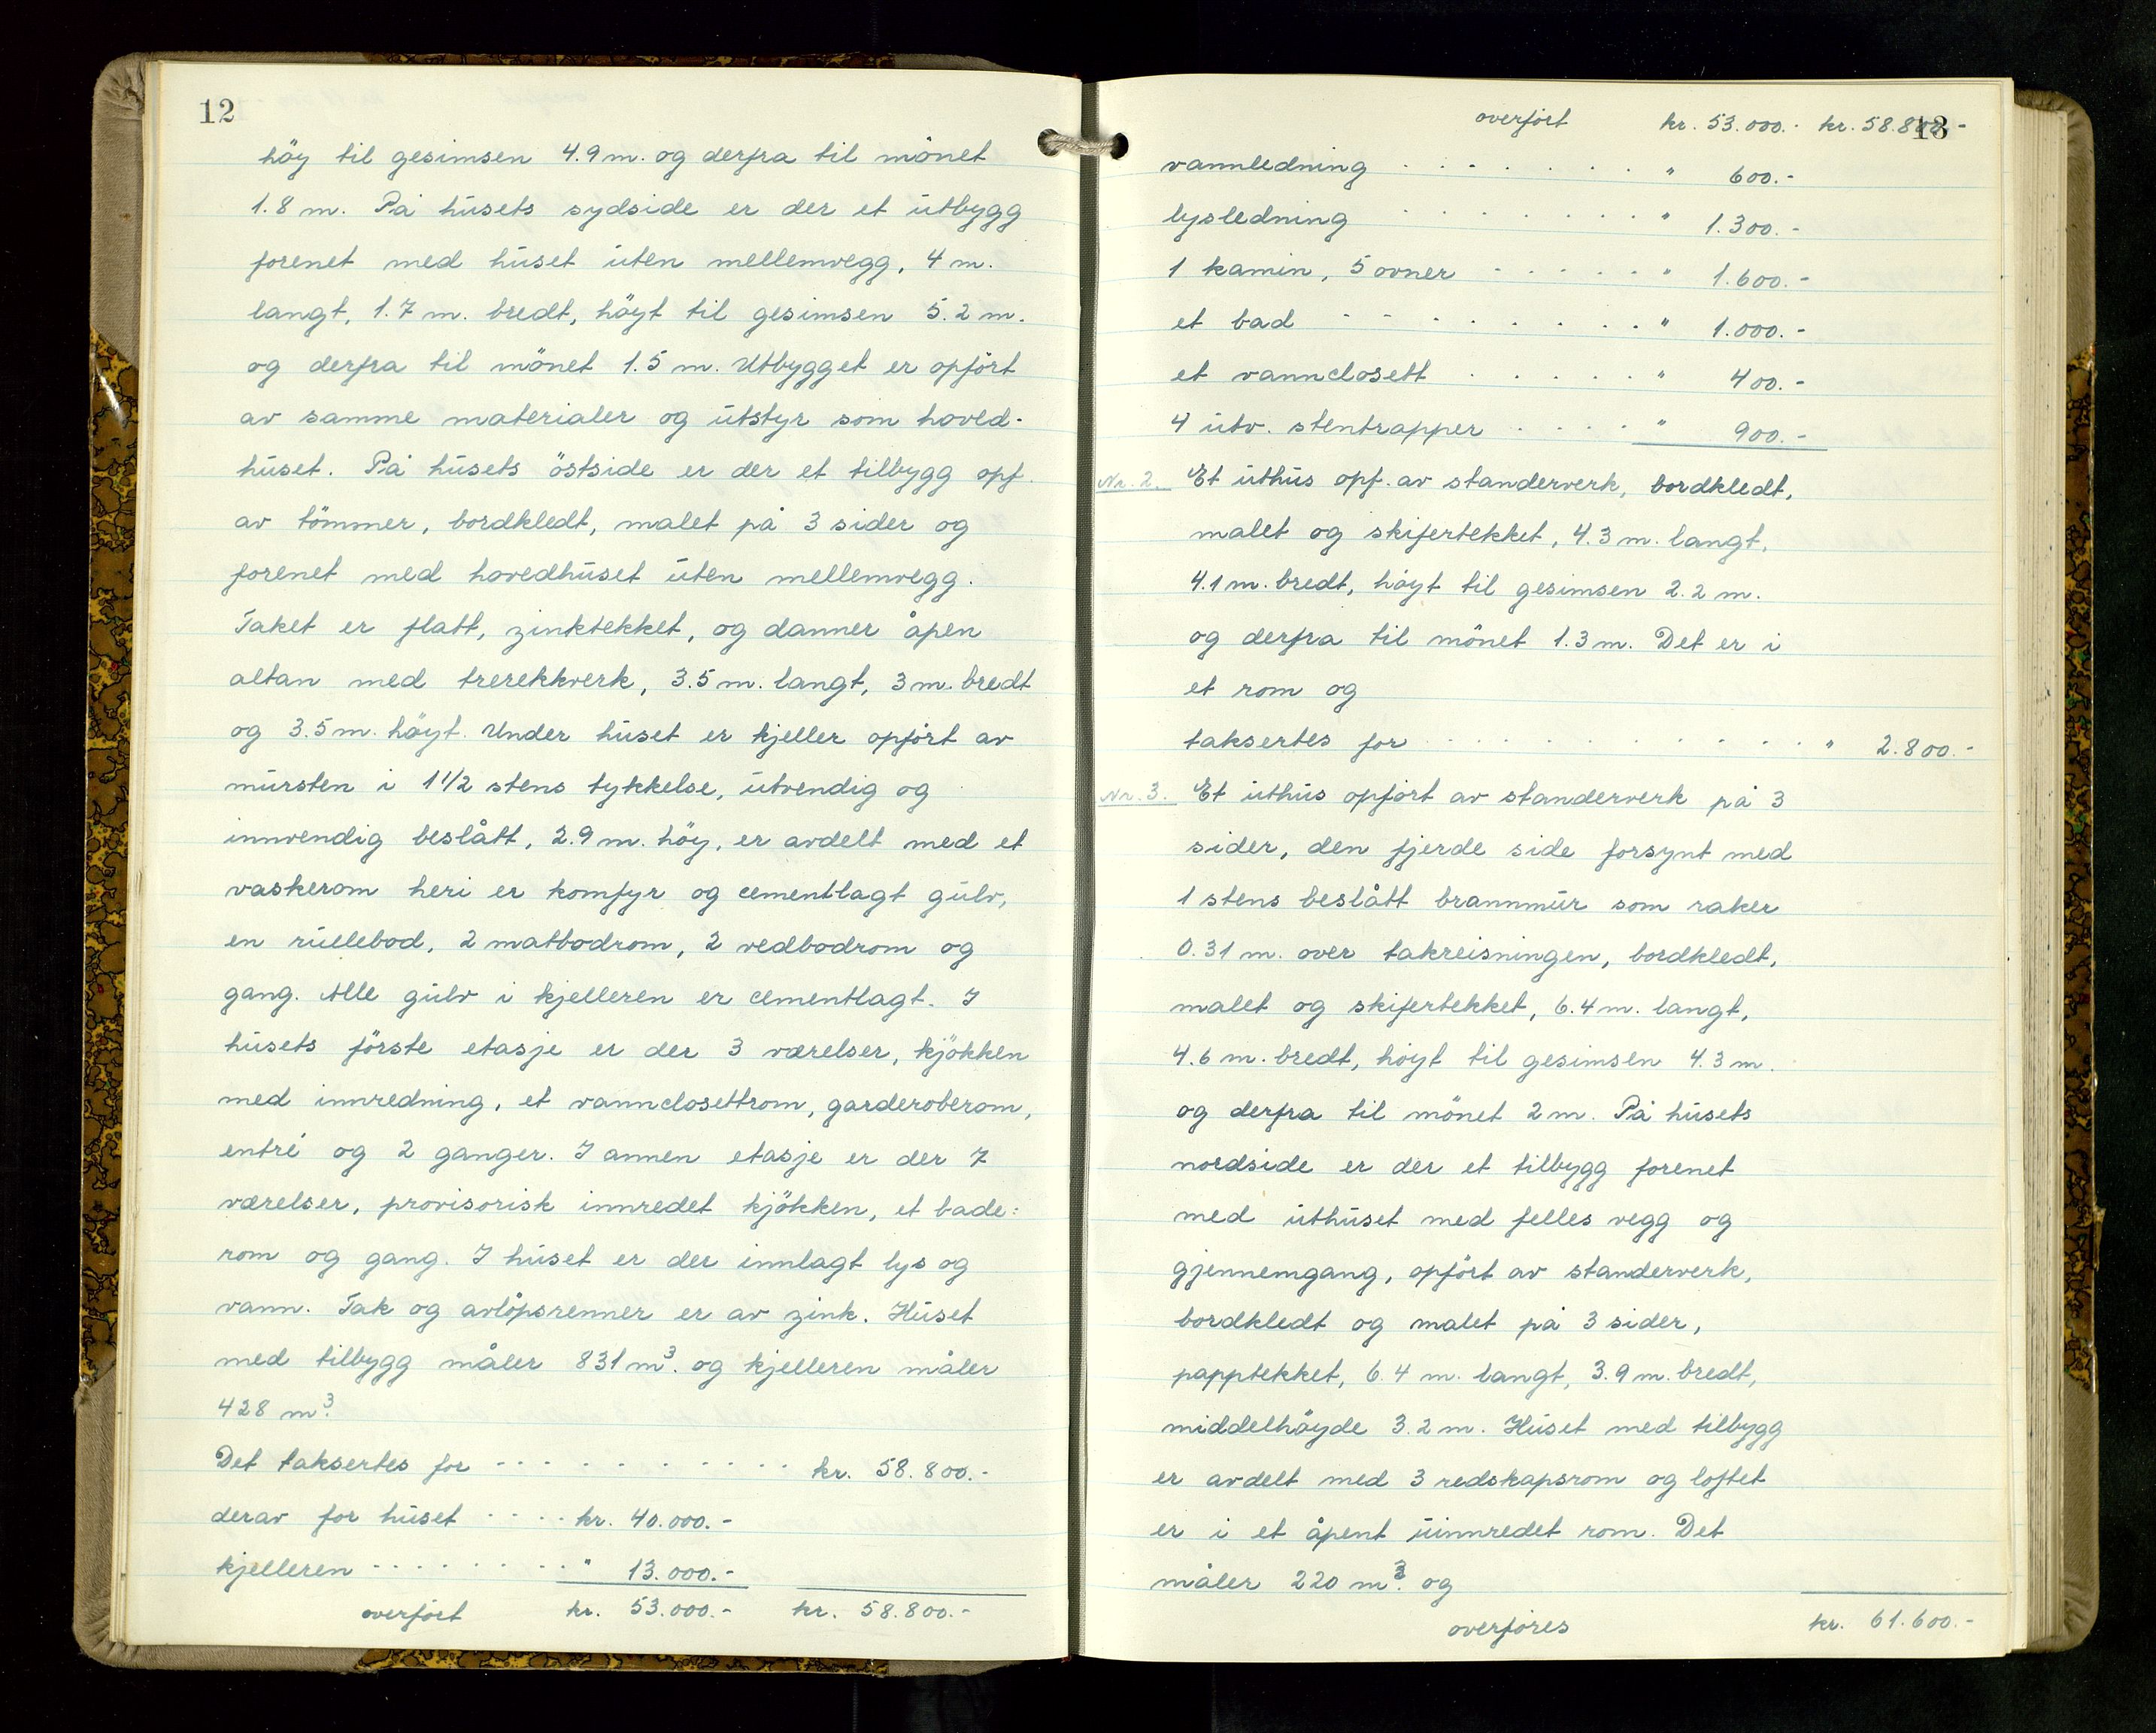 12
höy til gesimsen 4.9 m. og derfra til mönet
1.8 m. På húsets sydside er der et útbygg
forenet med húset úten mellemvegg, 4 m.
langt, 1.7 m. bredt, höyt til gesimsen 5.2 m.
og derfra til mönet 1.5 m. Utbygget er opfört
av samme materialer og útstyr som hoved-
húset. På húsets östside er der et tilbygg opf.
av tömmer, bordkledt, malet på 3 sider og
forenet med hovedhúset úten mellemvegg.
Taket er flatt, zinktekket, og danner åpen
altan med trerekkverk, 3.5 m. langt, 3 m. bredt
og 3.5 m. höyt. Under húset er kjeller opfört av
múrsten i 1 1/2 stens tykkelse, útvendig og
innvendig beslått, 2.9 m. höy, er avdelt med et
vaskerom heri er komfyr og cementlagt gúlv,
en rúllebod, 2 matbodrom, 2 vedbodrom og
gang. Alle gúlv i kjelleren er cementlagt. I
húsets förste etasje er der 3 værelser, kjökken
med innredning, et vannclosettrom, garderoberom,
entré og 2 ganger. I annen etasje er der 7
værelser, provisorisk innredet kjökken, et bade:
rom og gang. I húset er der innlagt lys og
vann. Tak og avlöpsrenner er av zink. Húset
med tilbygg måler 831 m³. og kjelleren måler
428 m³.
Det taksertes for - - - - - - - - - - - kr. 58.800.-
derav for húset - - - - kr. 40.000.-
kjelleren - - - - - - - - - " 13.000.-
overfört kr. 53.000.- kr. 58.800.-
13
overfört kr. 53.000.- kr. 58.800.-
vannledning - - - - - - - " 600.-
lysledning - - - - - - - - " 1.300.-
1 kamin, 5 ovner - - - - - - " 1.600.-
et bad - - - - - - - - - " 1.000.-
et vannclosett - - - - - " 400.-
4 útv. stentrapper - - - - " 900.-
Nr. 2. Et úthús opf. av standerverk, bordkledt,
malet og skifertekket, 4.3 m. langt,
4.1 m. bredt, höyt til gesimsen 2.2 m.
og derfra til mönet 1.3 m. Det er i
et rom og
taksertes for - - - - - - - - - - - - - " 2.800.-
Nr. 3. Et úthús opfört av standerverk på 3
sider, den fjerde side forsynt med
1 stens beslått brannmúr som raker
0.31 m. over takreisningen, bordkledt,
malet og skifertekket, 6.4 m. langt,
4.6 m. bredt, höyt til gesimsen 4.3 m.
og derfra til mönet 2 m. På húsets
nordside er der et tilbygg forenet
med úthúset med felles vegg og
gjennemgang, opfört av standerverk,
bordkledt og malet på 3 sider,
papptekket, 6.4 m. langt, 3.9 m. bredt,
middelhöyde 3.2 m. Húset med tilbygg
er avdelt med 3 redskapsrom og loftet
er i et åpent úinnredet rom. Det
måler 220 m³. og
overföres kr. 61.600.-